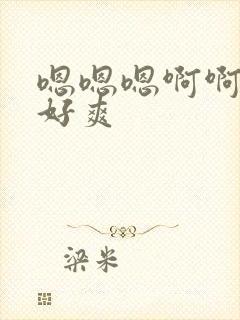 嗯嗯嗯啊啊
好爽
梁米